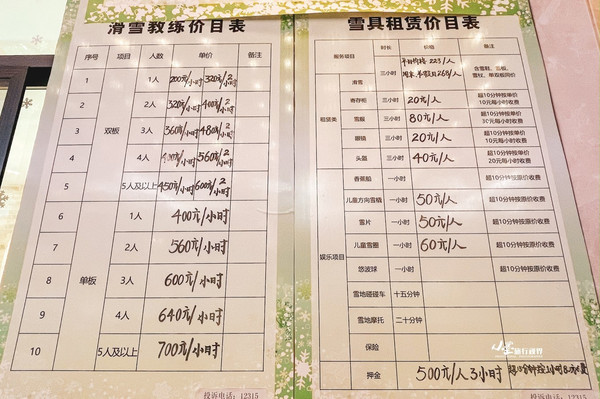 滑雪教练价目表
序号 项目 人数 单价 备注
1 双板 1人 200元/小时 320元/2小时
2 2人 320元/小时 400元/2小时
3 3人 360元/小时 480元/2小时
4 4人 400元/小时 560元/2小时
5 5人及以上 450元/小时 600元/2小时
6 单板 1人 400元/小时
7 2人 560元/小时
8 3人 600元/小时
9 4人 640元/小时
10 5人及以上 700元/小时
投诉电话：12315
雪具租赁价目表
服务项目 时长 价格 备注
租赁类 滑雪 三小时 平日价格 223/人
268/人
含雪鞋、双板、
雪杖、单双板同价
寄存柜 三小时 20元/人 超10分钟按单价
10元每小时收费
雪服 三小时 80元/人 超10分钟按单价
30元每小时收费
眼镜 三小时 20元/人 超10分钟按单价
10元每小时收费
头盔 三小时 40元/人 超10分钟按单价
20元每小时收费
娱乐项目 香蕉船 一小时 超10分钟按原价收费
儿童方向雪橇 一小时 50元/人 超10分钟按原价收费
雪片 一小时 50元/人 超10分钟按原价收费
儿童雪圈 一小时 60元/人 超10分钟按原价收费
悠波球 一小时 超10分钟按原价收费
雪地碰碰车 十五分钟
雪地摩托 二十分钟
保险
押金 500元/人 3小时
投诉电话：12315